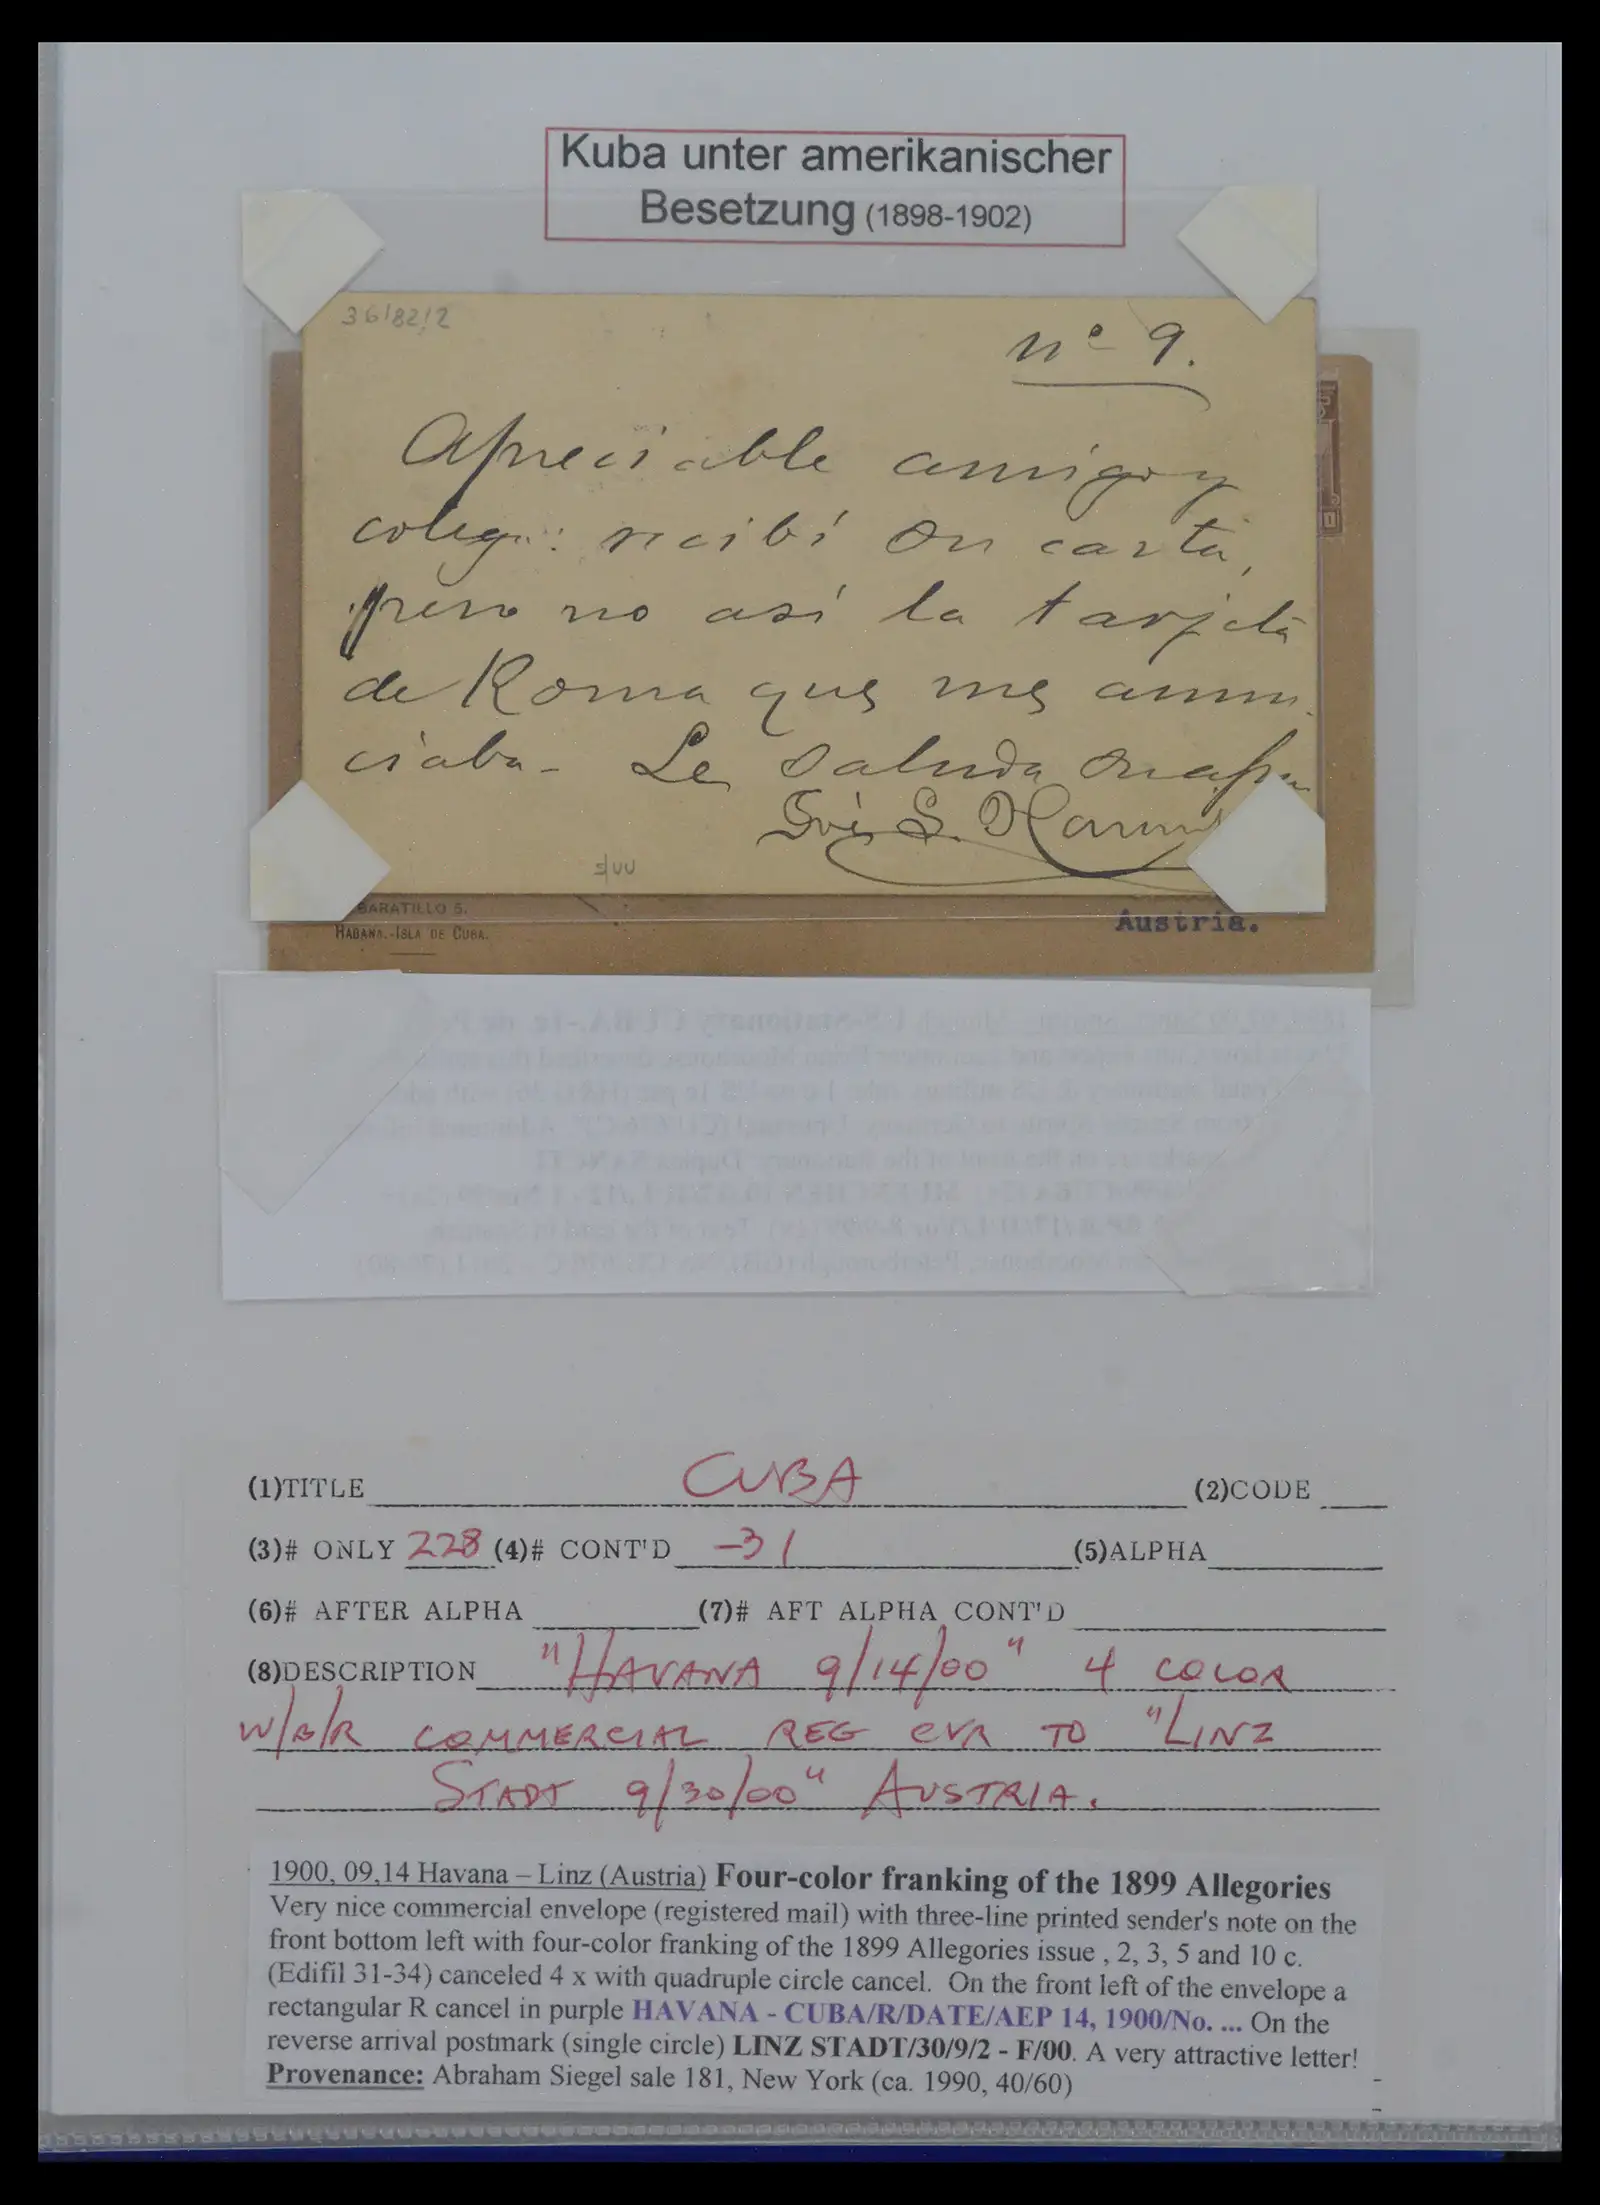 Kuba unter amerikanischer
Besetzung (1898-1902)
36/82/2
nº 9.
Apreciable amigo y
colega: recibí su carta,
pero no así la tarjeta
de Roma que me anun-
ciaba - Le saluda su afmo
S.
s/uu
BARATILLO 5.
HABANA.-ISLA DE CUBA.
Austria.
(1)TITLE CUBA (2)CODE
(3)# ONLY 228 (4)# CONT'D -31 (5)ALPHA
(6)# AFTER ALPHA (7)# AFT ALPHA CONT'D
(8)DESCRIPTION "HAVANA 9/14/00" 4 COLOR
W/B/R COMMERCIAL REG CVR TO "LINZ
STADT 9/30/00" AUSTRIA.
1900, 09,14 Havana – Linz (Austria) Four-color franking of the 1899 Allegories
Very nice commercial envelope (registered mail) with three-line printed sender's note on the
front bottom left with four-color franking of the 1899 Allegories issue , 2, 3, 5 and 10 c.
(Edifil 31-34) canceled 4 x with quadruple circle cancel. On the front left of the envelope a
rectangular R cancel in purple HAVANA - CUBA/R/DATE/AEP 14, 1900/No. ... On the
reverse arrival postmark (single circle) LINZ STADT/30/9/2 - F/00. A very attractive letter!
Provenance: Abraham Siegel sale 181, New York (ca. 1990, 40/60)